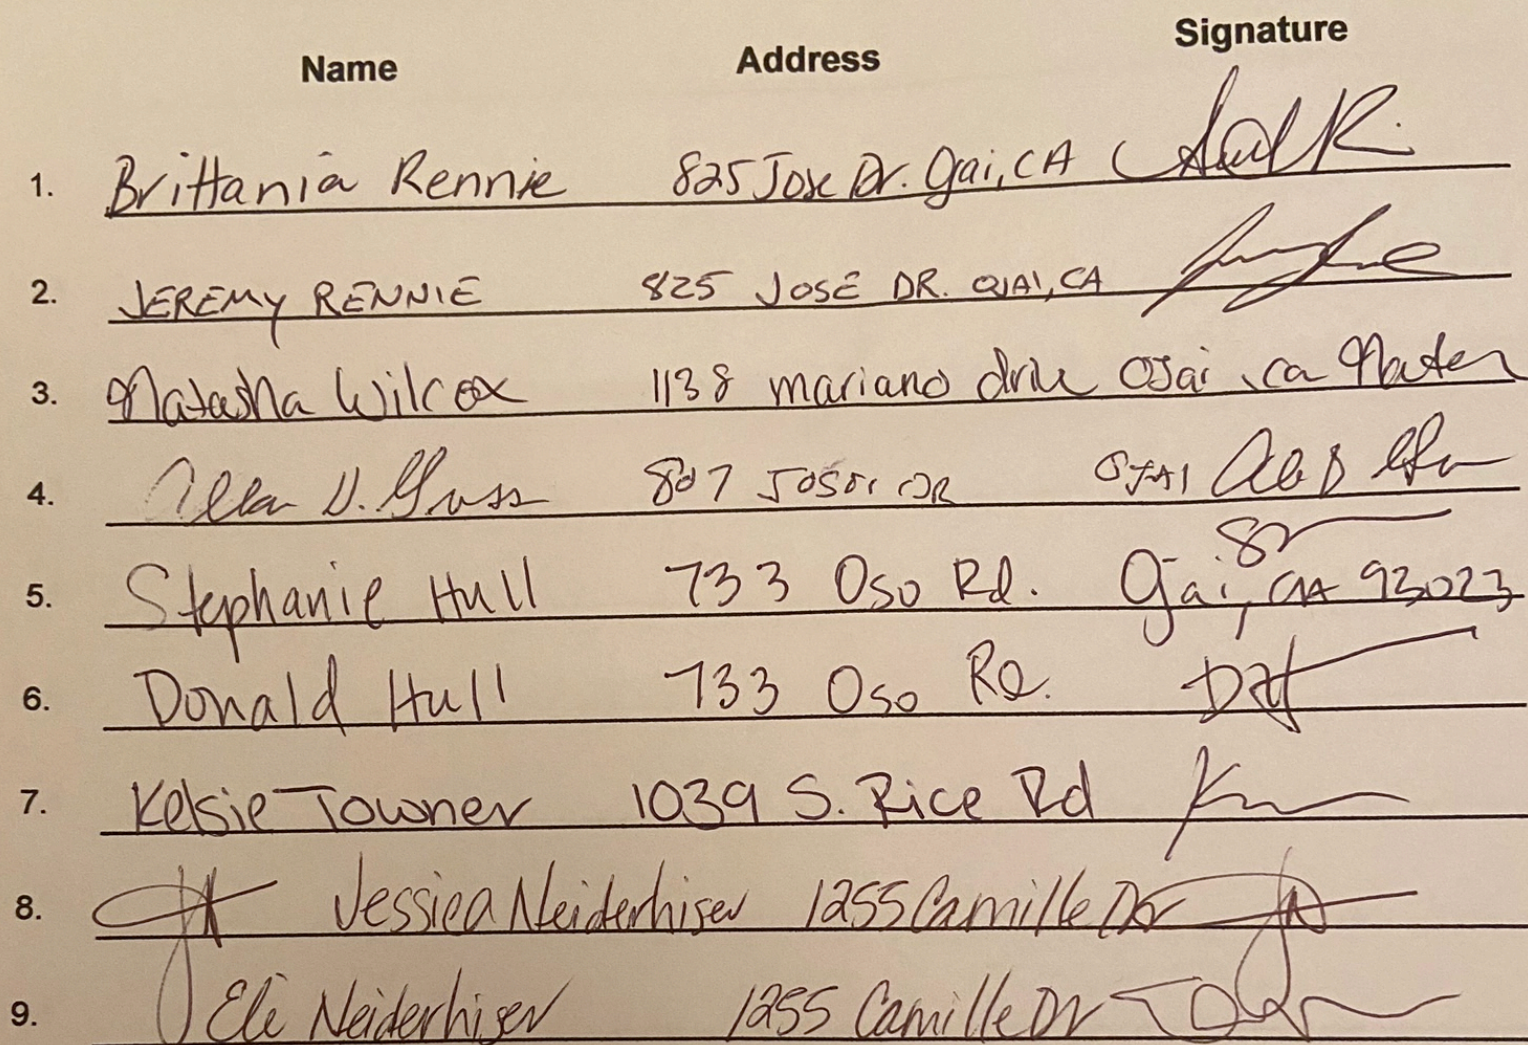 Name Address Signature
1. Brittania Rennie 825 Jose Dr. Ojai, CA
2. JEREMY RENNIE 825 JOSE DR. OJAI, CA
3. Natasha Wilcox 1138 mariano drive Ojai, ca
4. 807 DR OJAI
5. Stephanie Hull 733 Oso Rd. Ojai, CA 93023
6. Donald Hull 733 Oso Rd.
7. Kelsie Towner 1039 S. Rice Rd
8. Jessica Neiderhiser 1255 Camille Dr
9. Eli Neiderhiser 1255 Camille Dr